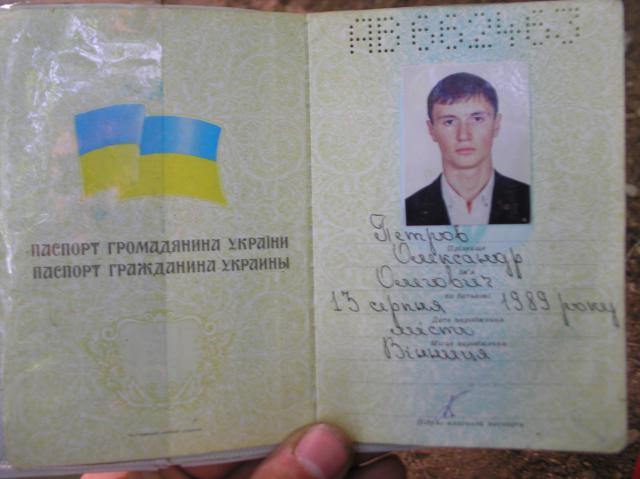 ПАСПОРТ ГРОМАДЯНИНА УКРАЇНИ
ПАСПОРТ ГРАЖДАНИНА УКРАИНЫ
Петров
Прізвище
Олександр
Ім'я
Олегович
По батькові
13 серпня 1989 року
Дата народження
міста
Місце народження
Вінниця
Підпис власника паспорта